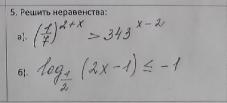 5. Решить неравенства:
а). (1/7)^{2+x} > 343^{x-2}
б). log_{1/2} (2x-1) ≤ -1